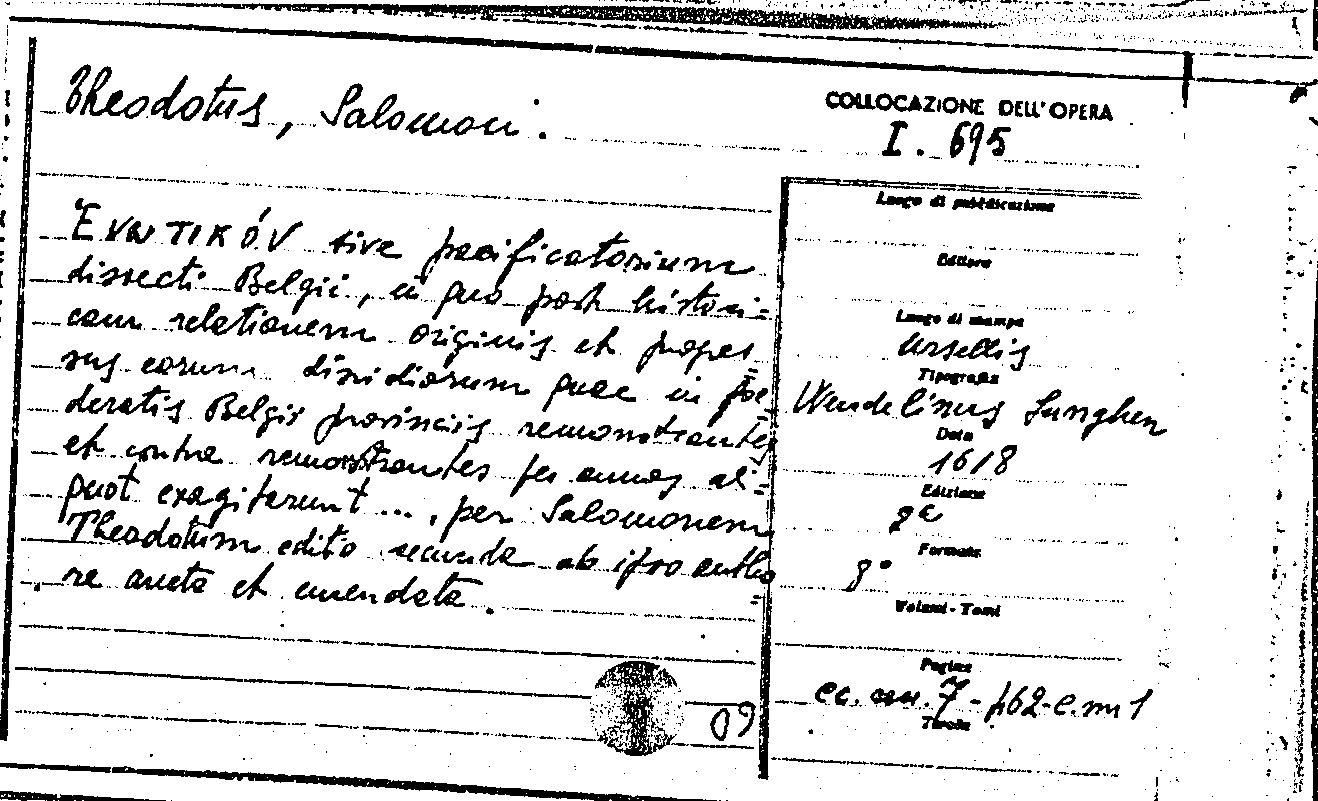 Theodotus, Salomon.
COLLOCAZIONE DELL'OPERA
I. 695
Ἑνωτικόν sive pacificatorium
dissecti Belgii, in quo post histori=
cam relationem originis et progres
sus earum disidiorum quae in foe=
deratis Belgii provinciis remonstrantes
et contra remonstrantes per annos ali=
quot exagitarunt ..., per Salomonem
Theodotum edito secunda ab ipso autho=
re aucta et emendata.
09
Luogo di pubblicazione
Editore
Luogo di stampa
Ursellis
Tipografia
Wendelinus Junghen
Data
1618
Edizione
2ª
Formato
8°
Volumi - Tomi
Pagine
cc. nn. 7 - p62 - c. nn 1
Tavole